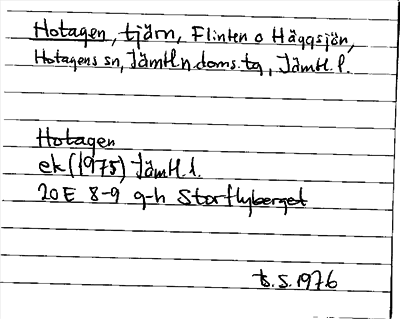 Hotagen, tjärn, Flinten o Häggsjön,
Hotagens sn, Jämtl.n.doms.tg, Jämtl. l.
Hotagen
ek (1975) Jämtl. l.
20E 8-9 g-h Storflyberget
ts.S.1976